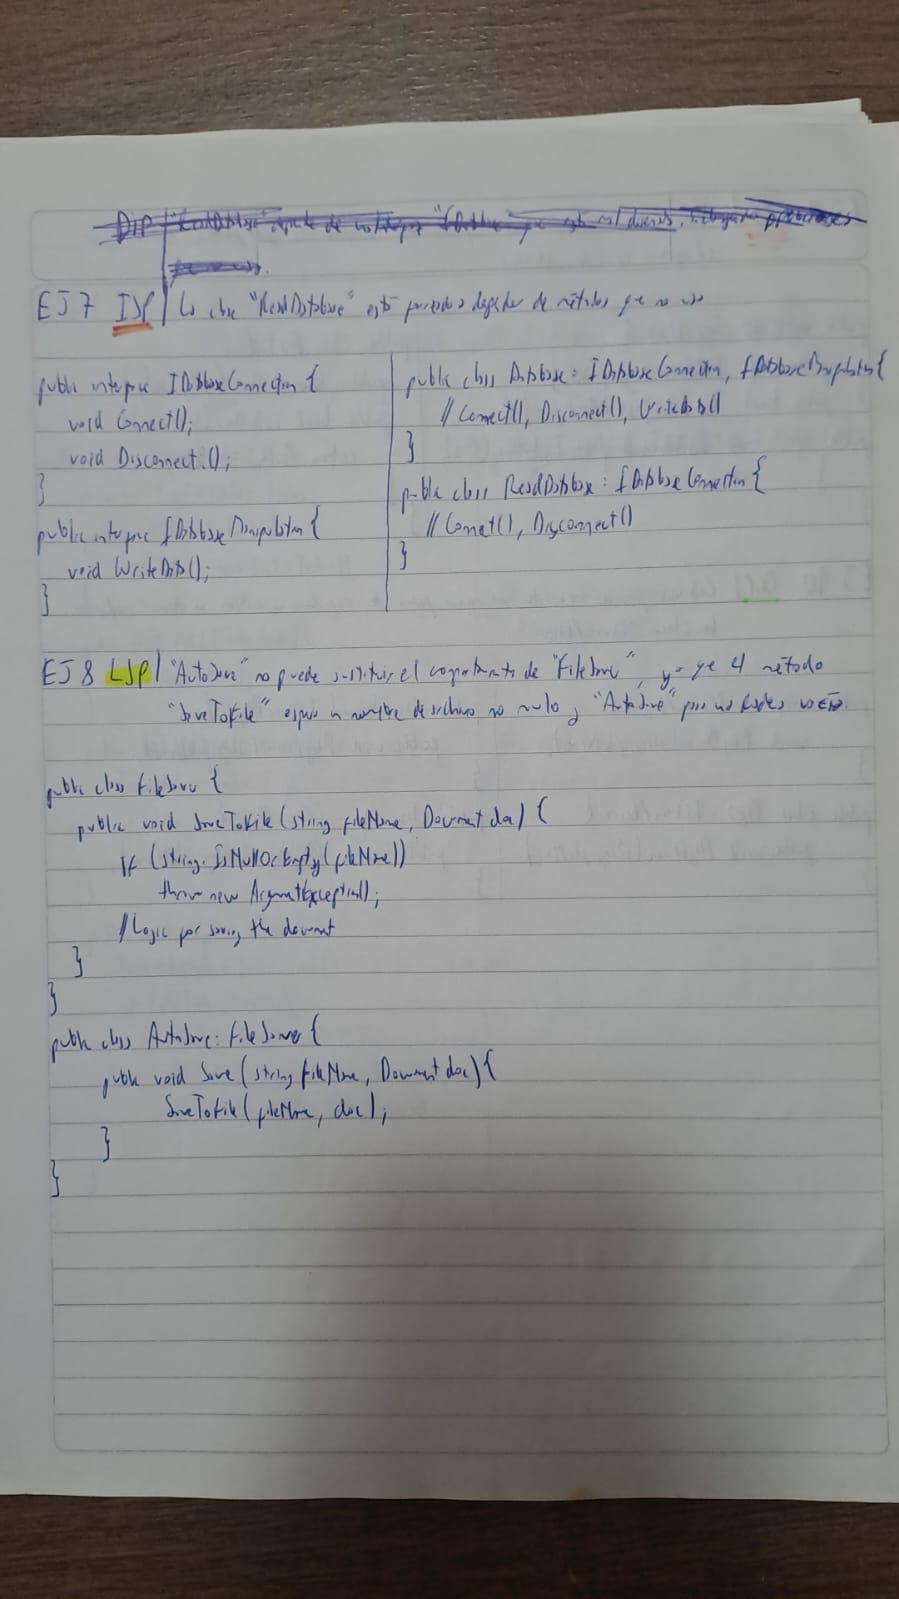 DIP | "ReadDatabase" depende de
EJ 7 ISP | La clase "ReadDatabase" está forzada a depender de métodos que no usa
public interface IDatabaseConnection {
void Connect();
void Disconnect();
}
public interface IDatabaseManipulation {
void WriteData();
}
public class Database : IDatabaseConnection, IDatabaseManipulation {
// Connect(), Disconnect(), WriteData()
}
public class ReadDatabase : IDatabaseConnection {
// Connect(), Disconnect()
}
EJ 8 LSP | "AutoSave" no puede sustituir el comportamiento de "FileSaver", ya que el método
"SaveToFile" espera un nombre de archivo no nulo y "AutoSave"
public class FileSaver {
public void SaveToFile (string fileName, Document doc) {
if (string.IsNullOrEmpty(fileName))
throw new ArgumentException();
// Logic for saving the document
}
}
public class AutoSave : FileSaver {
public void Save (string fileName, Document doc) {
SaveToFile (fileName, doc);
}
}